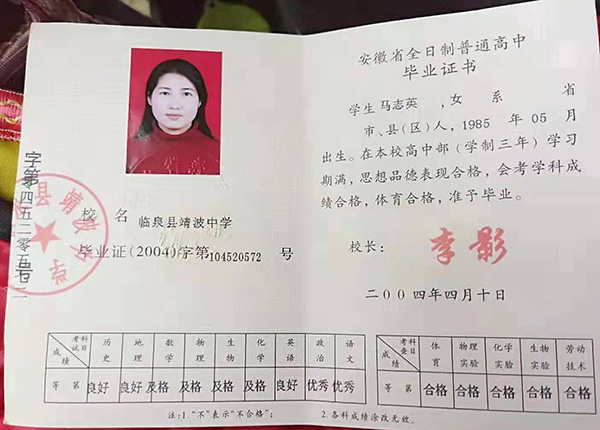 安徽省全日制普通高中
毕业证书
学生 马志英 ,女 系 省
市、县(区)人, 1985 年 05 月
出生。在本校高中部(学制三年)学习
期满,思想品德表现合格,会考学科成
绩合格,体育合格,准予毕业。
校长: 李影
二00四年四月十日
字第
校 名 临泉县靖波中学
毕业证(2004)字第104520572 号
考试科目 成绩 历史 地理 数学 物理 生物 化学 英语 政治 语文
等第 良好 良好 及格 及格 及格 及格 良好 优秀 优秀
考查科目 成绩 体育 物理实验 化学实验 生物实验 劳动技术
等第 合格 合格 合格 合格 合格
注:1.“不”表示“不合格”; 2.各科成绩涂改无效。